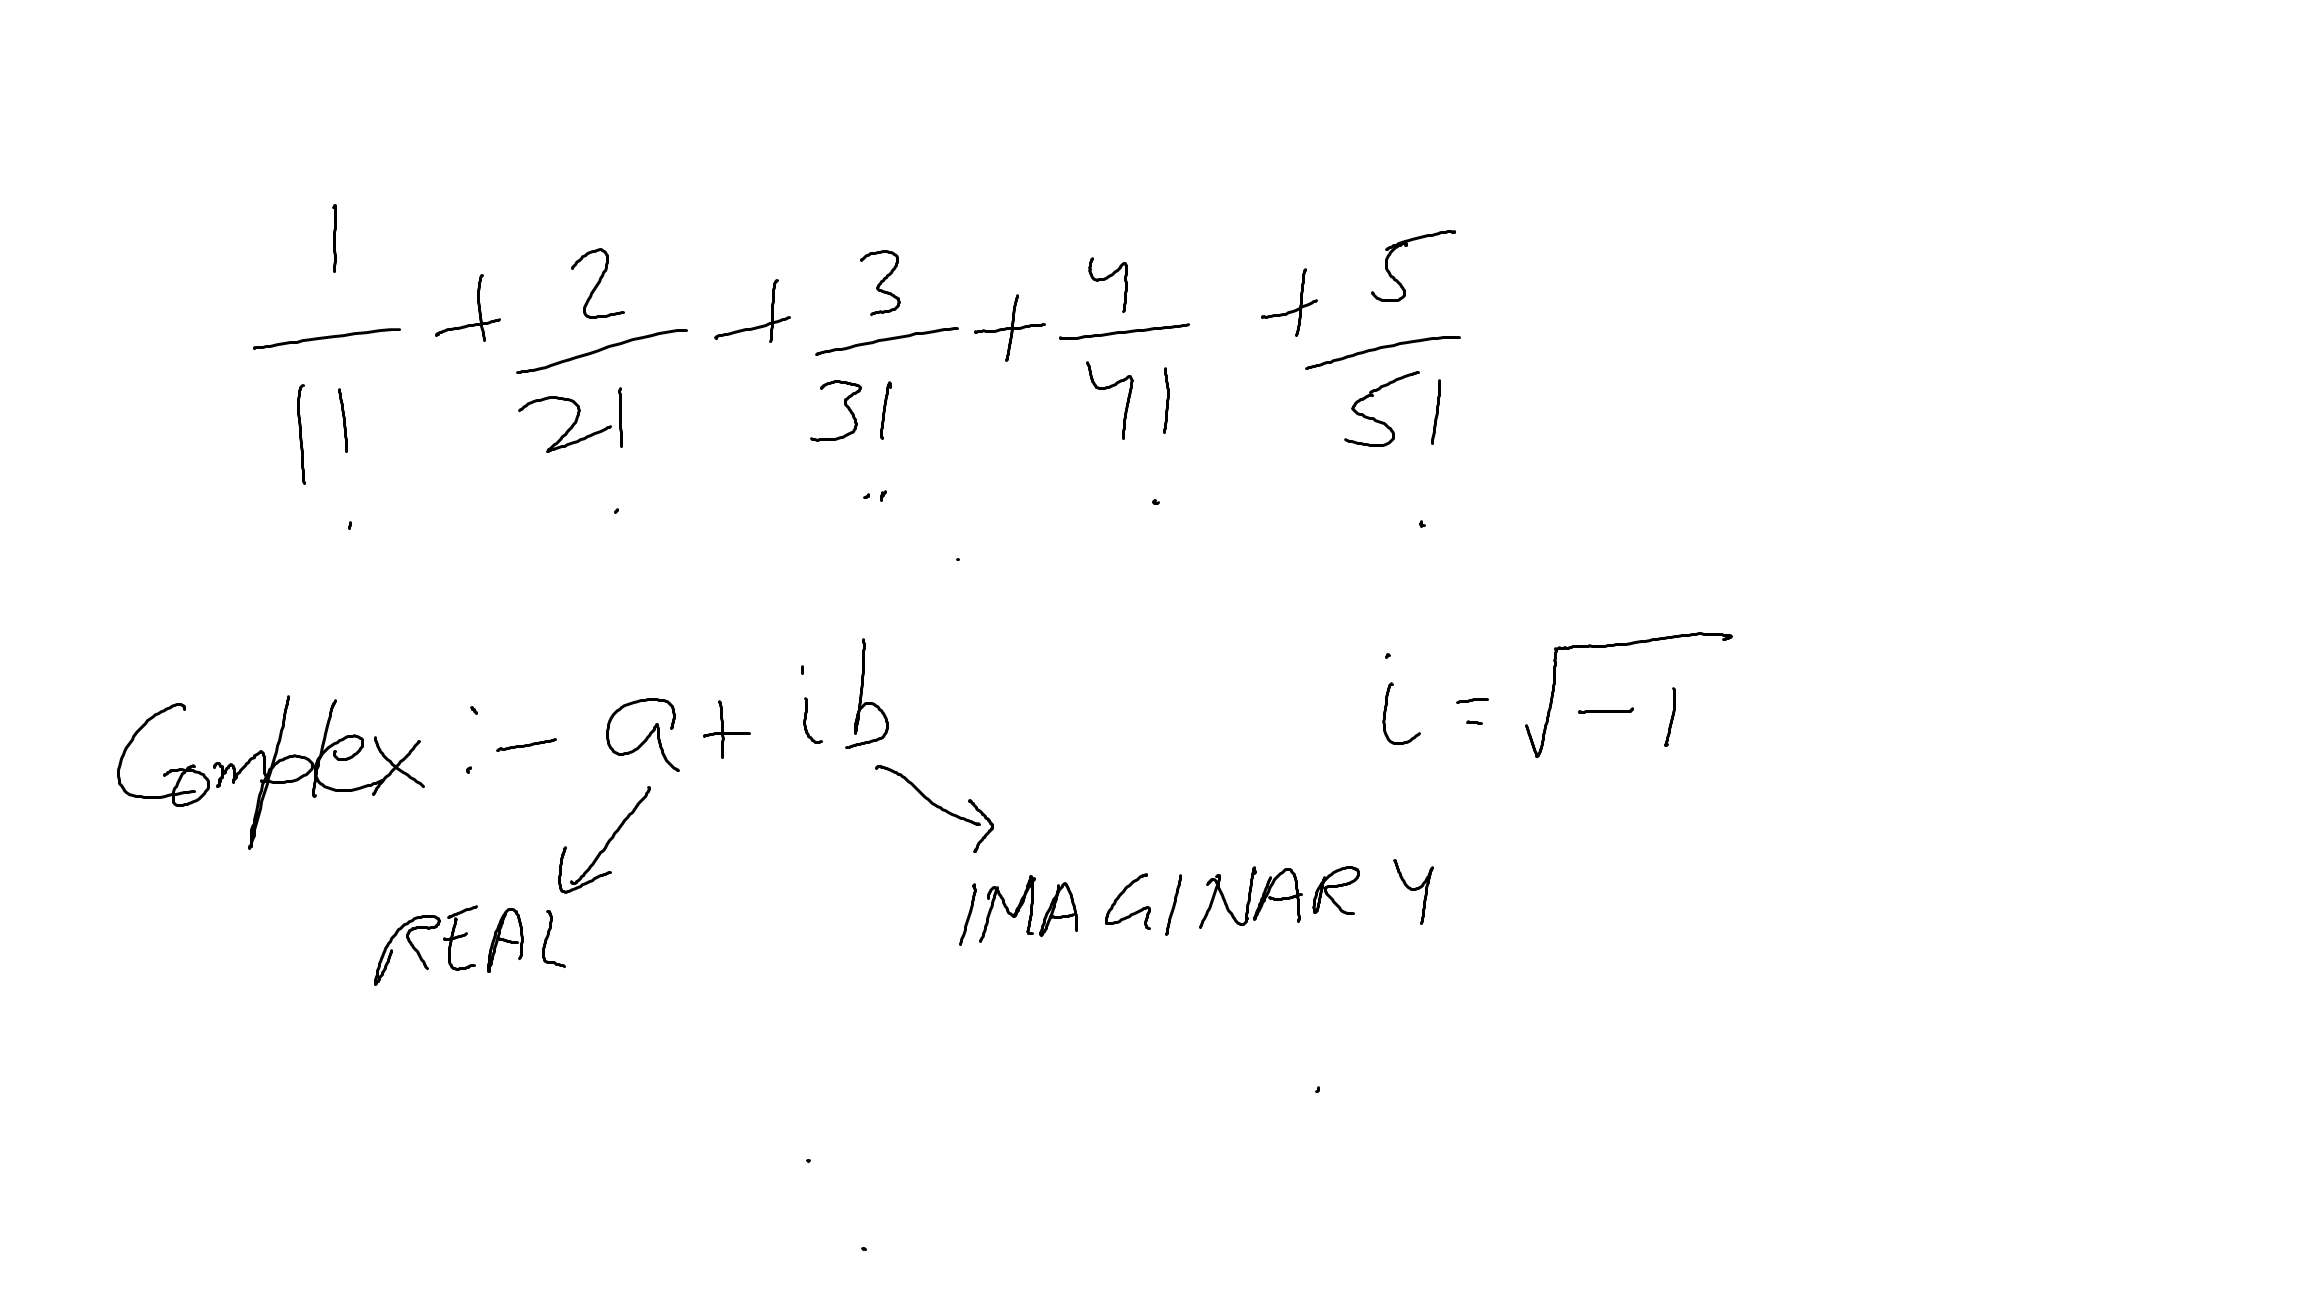 1/1! + 2/2! + 3/3! + 4/4! + 5/5!
Complex :- a + ib    i = √-1
REAL    IMAGINARY